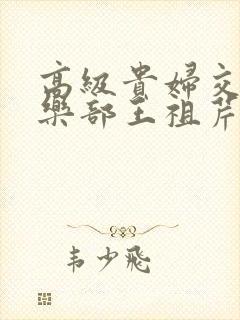 高級貴婦交
樂部王祖芹
韦少飛